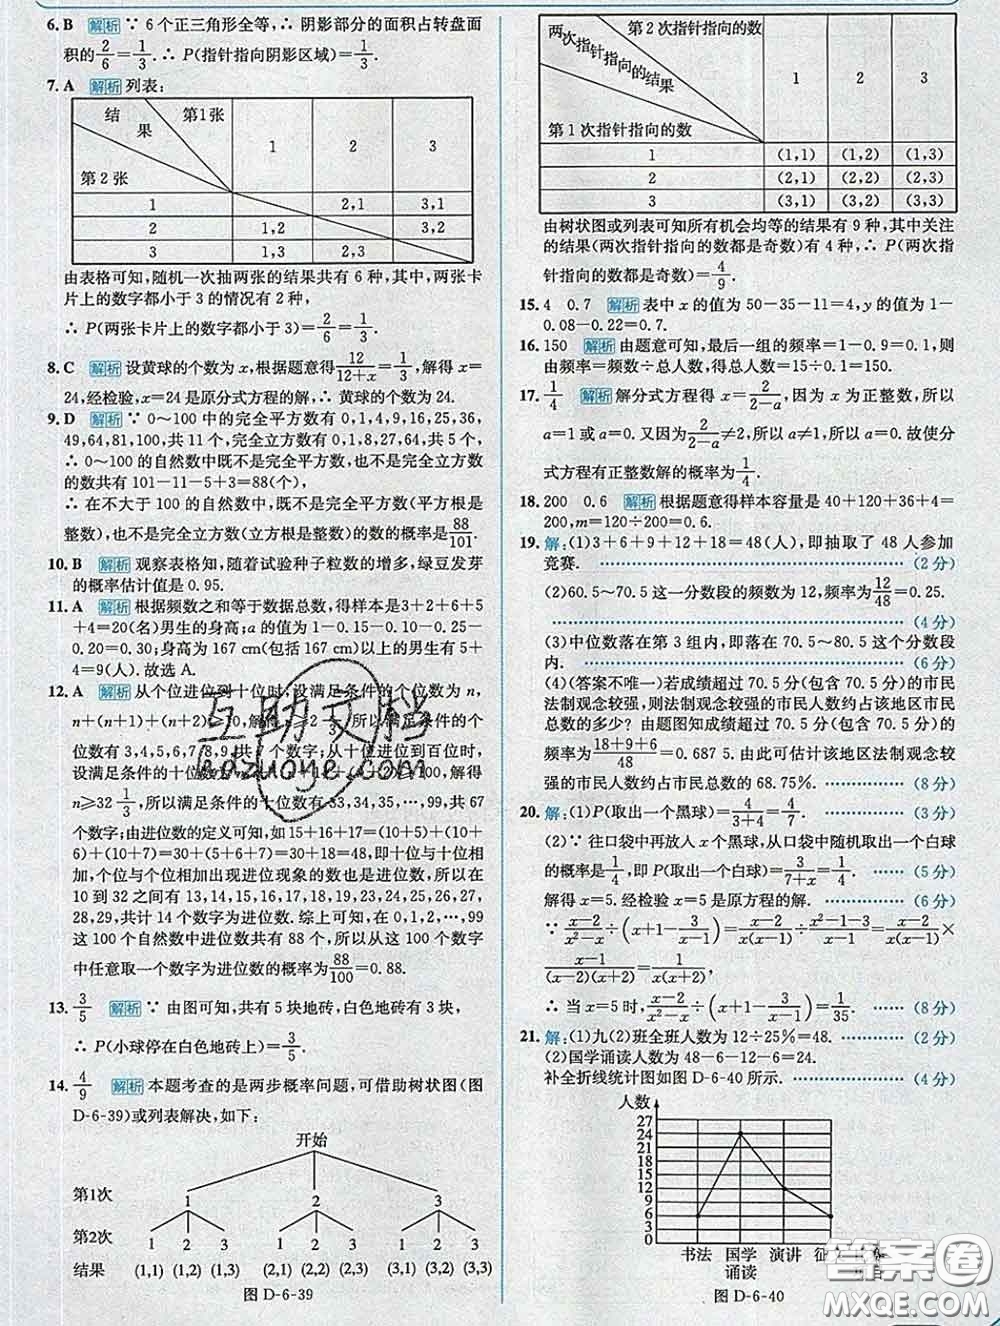 6. B 解析 ∵ 6个正三角形全等,∴ 阴影部分的面积占转盘面
积的2/6=1/3.∴ P(指针指向阴影区域)=1/3.
7. A 解析 列表:
结果 第1张 第2张 1 2 3
1 2,1 3,1
2 1,2 3,2
3 1,3 2,3
由表格可知,随机一次抽两张的结果共有6种,其中,两张卡
片上的数字都小于3的情况有2种,
∴ P(两张卡片上的数字都小于3)=2/6=1/3.
8. C 解析 设黄球的个数为x,根据题意得12/(12+x)=1/3,解得x=
24,经检验,x=24是原分式方程的解,∴ 黄球的个数为24.
9. D 解析 ∵ 0~100中的完全平方数有0,1,4,9,16,25,36,
49,64,81,100,共11个,完全立方数有0,1,8,27,64,共5个,
∴ 0~100的自然数中既不是完全平方数,也不是完全立方数
的数共有101-11-5+3=88(个),
∴ 在不大于100的自然数中,既不是完全平方数(平方根是
整数),也不是完全立方数(立方根是整数)的数的概率是88/101.
10. B 解析 观察表格知,随着试验种子粒数的增多,绿豆发芽
的概率估计值是0.95.
11. A 解析 根据频数之和等于数据总数,得样本是3+2+6+5
+4=20(名)男生的身高;a的值为1-0.15-0.10-0.15-
0.20=0.30;身高为167 cm(包括167 cm)以上的男生有5+
4=9(人).故选A.
12. A 解析 从个位进位到十位时,设满足条件的个位数为n,
n+(n+1)+(n+2)≥10,解得n≥2 1/3,所以满足条件的个
位数有3,4,5,6,7,8,9,共7个数字;从十位进位到百位时,
设满足条件的十位数为n,n+(n+1)+(n+2)≥100,解得
n≥32 1/3,所以满足条件的十位数有33,34,35,…,99,共67
个数字;由进位数的定义可知,如15+16+17=(10+5)+(10+
6)+(10+7)=30+(5+6+7)=30+18=48,即十位与十位相
加,个位与个位相加出现进位现象的数也是进位数,所以在
10到32之间有13,14,15,16,17,18,19,23,24,25,26,27,
28,29,共计14个数字为进位数.综上可知,在0,1,2,…,99
这100个自然数中进位数共有88个,所以从这100个数字
中任意取一个数字为进位数的概率为88/100=0.88.
13. 3/5 解析 ∵ 由图可知,共有5块地砖,白色地砖有3块,
∴ P(小球停在白色地砖上)=3/5.
14. 4/9 解析 本题考查的是两步概率问题,可借助树状图(图
D-6-39)或列表解决,如下:
开始
第1次 1 2 3
第2次 1 2 3 1 2 3 1 2 3
结果 (1,1) (1,2) (1,3) (2,1) (2,2) (2,3) (3,1) (3,2) (3,3)
图 D-6-39
两次指针指向的结果 第2次指针指向的数 第1次指针指向的数 1 2 3
1 (1,1) (1,2) (1,3)
2 (2,1) (2,2) (2,3)
3 (3,1) (3,2) (3,3)
由树状图或列表可知所有机会均等的结果有9种,其中关注
的结果(两次指针指向的数都是奇数)有4种,∴ P(两次指
针指向的数都是奇数)=4/9.
15. 4 0.7 解析 表中x的值为50-35-11=4,y的值为1-
0.08-0.22=0.7.
16. 150 解析 由题意可知,最后一组的频率=1-0.9=0.1,则
由频率=频数÷总人数,得总人数=15÷0.1=150.
17. 1/4 解析 解分式方程得x=2/(2-a),因为x为正整数,所以
a=1或a=0.又因为2/(2-a)≠2,所以a≠1,所以a=0.故使分
式方程有正整数解的概率为1/4.
18. 200 0.6 解析 根据题意得样本容量是40+120+36+4=
200,m=120÷200=0.6.
19. 解:(1)3+6+9+12+18=48(人),即抽取了48人参加
竞赛. (2分)
(2)60.5~70.5这一分数段的频数为12,频率为12/48=0.25.
(4分)
(3)中位数落在第3组内,即落在70.5~80.5这个分数段
内. (6分)
(4)(答案不唯一)若成绩超过70.5分(包含70.5分)的市民
法制观念较强,则法制观念较强的市民人数约占该地区市民
总数的多少?由题图知成绩超过70.5分(包含70.5分)的
频率为(18+9+6)/48=0.687 5.由此可估计该地区法制观念较
强的市民人数约占市民总数的68.75%. (8分)
20. 解:(1)P(取出一个黑球)=4/(3+4)=4/7. (3分)
(2)∵ 往口袋中再放入x个黑球,从口袋中随机取出一个白球
的概率是1/4,即P(取出一个白球)=3/(7+x)=1/4. (5分)
解得x=5.经检验x=5是原方程的解. (6分)
∵ (x-2)/(x²-x)÷(x+1-3/(x-1))=(x-2)/(x(x-1))÷(x²-1-3)/(x-1)=(x-2)/(x(x-1))×
(x-1)/((x-2)(x+2))=1/(x(x+2)),
∴ 当x=5时,(x-2)/(x²-x)÷(x+1-3/(x-1))=1/35. (8分)
21. 解:(1)九(2)班全班人数为12÷25%=48. (2分)
(2)国学诵读人数为48-6-12-6=24.
补全折线统计图如图D-6-40所示. (4分)
人数
27
24
21
18
15
12
9
6
3
0
书法 国学诵读 演讲 征
图 D-6-40
互助文档
hdzuoye.com
答案圈
MXQE.COM